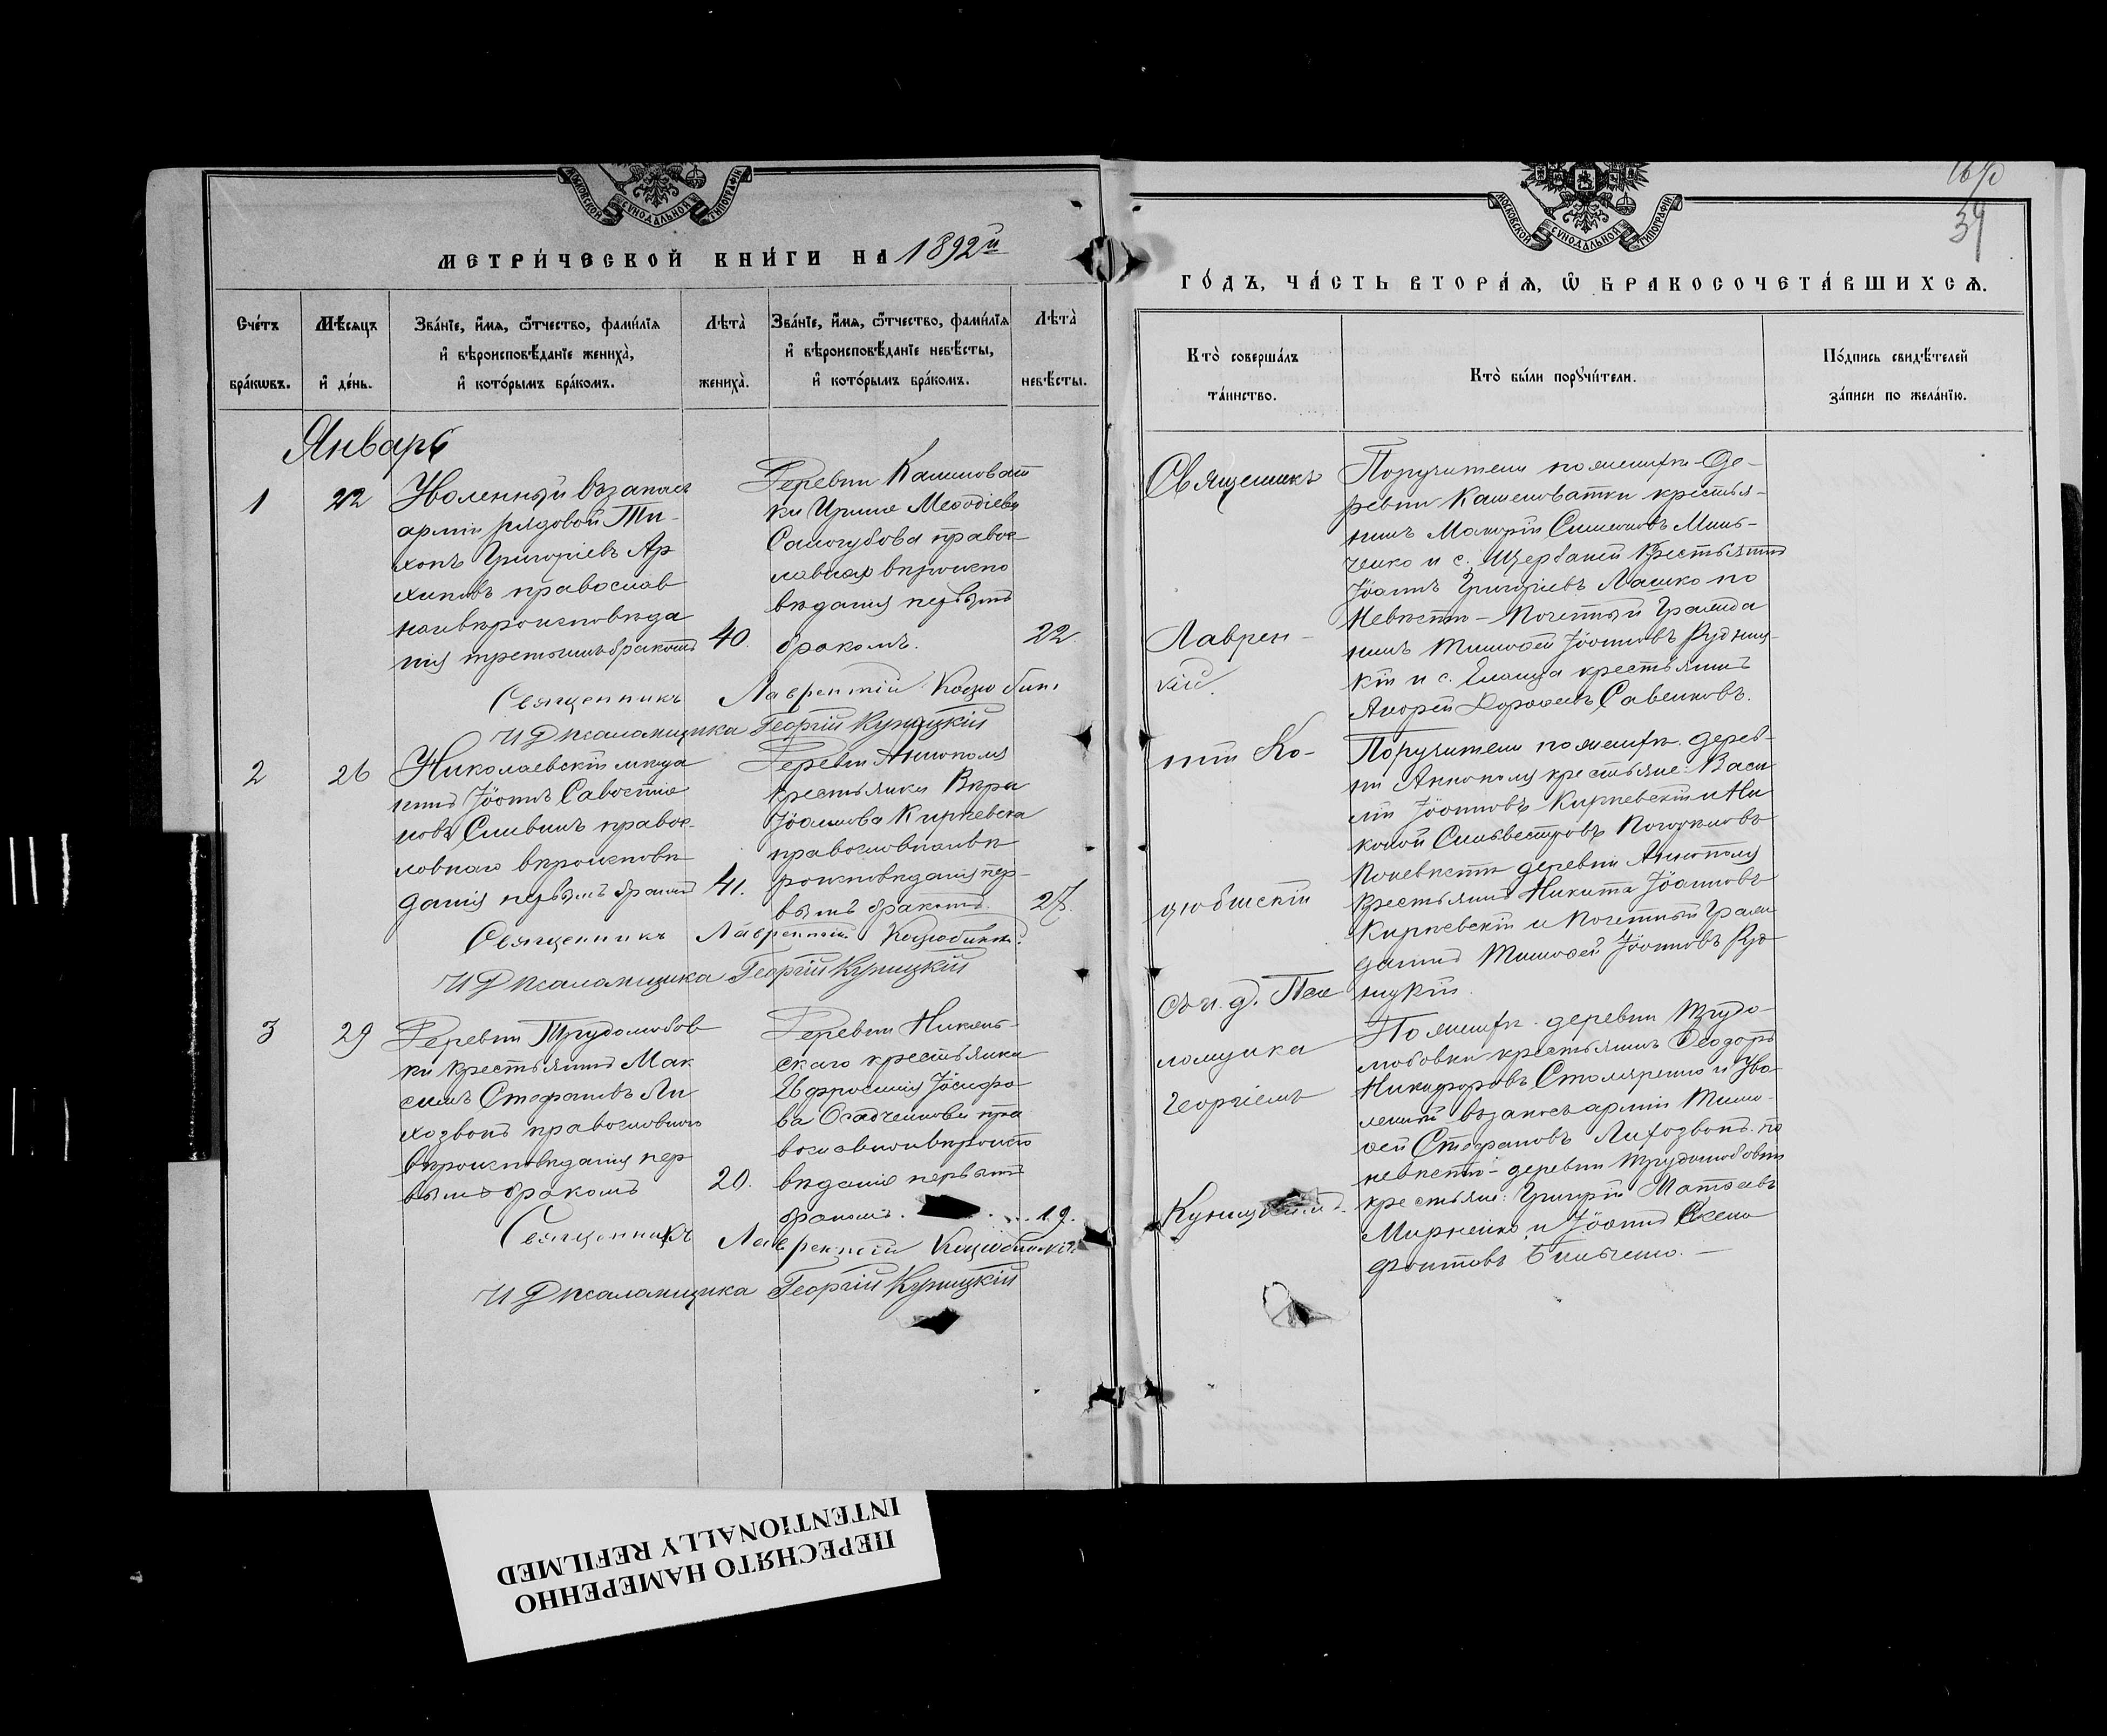 МОСКОВСКОЙ СѴНОДАЛЬНОЙ ТИПОГРАФІИ
МЕТРИ́ЧЕСКОЙ КНИ́ГИ НА 1892й
Сче́тъ бра́кѡвъ.
Мѣ́сяцъ и҆ де́нь.
Зва́нїе, и҆́мѧ, ѻ҆́тчество, фами́лїѧ
и҆ вѣроисповѣ́данїе жениха̀,
и҆ кото́рымъ бра́комъ.
Лѣта̀ жениха̀.
Зва́нїе, и҆́мѧ, ѻ҆́тчество, фами́лїѧ
и҆ вѣроисповѣ́данїе невѣ́сты,
и҆ кото́рымъ бра́комъ.
Лѣта̀ невѣ́сты.
Январь
1
22
Уволенный въ запасъ
арміи рядовой Ти-
хонъ Григоріевъ Ар
хиповъ православ
наго вѣроисповѣда
нія третьимъ бракомъ
40.
Деревни Камишоват
ки Ирина Меѳодіева
Самогубова правос-
лавнаго вѣроиспо
вѣданія первымъ
бракомъ.
22.
Священникъ Лаврентій Коцюбин.
И Д псаломщика Георгій Куницкій
2
26
Николаевскій мѣща
нинъ Іоаннъ Савостія
новъ Сливинъ правос-
лавнаго вѣроисповѣ
данія первымъ бракомъ
41.
Деревни Аннополя
крестьянка Вѣра
Іоаннова Кирѣевска
православнаго вѣ
роисповѣданія пер-
вымъ бракомъ.
27.
Священникъ Лаврентій Коцюбинск.
И Д псаломщика Георгій Куницкій
3
29
Деревни Трудолюбов
ки крестьянинъ Мак
симъ Стефановъ Ли
ходзвонъ православнаго
вѣроисповѣданія пер
вымъ бракомъ
20.
Деревни Николь-
скаго крестьянка
Евфросинія Іосифо
ва Осадченкова пра
вославнаго вѣроиспо
вѣданія первымъ
бракомъ.
19.
Священникъ Лаврентій Коцюбинскій
И Д псаломщика Георгій Куницкій
МОСКОВСКОЙ СѴНОДАЛЬНОЙ ТИПОГРАФІИ
34
ГО́ДЪ, ЧА́СТЬ ВТОРА́Ѧ, Ѽ БРАКОСОЧЕТА́ВШИХСѦ.
Кто̀ соверша́лъ та́инство.
Кто̀ бы́ли порꙋчи́тели.
По́дпись свидѣ́телей за́писи по жела́нїю.
Священикъ
Лаврен-
тій Ко-
цюбинскій
съ и. д. Пса
ломщика
Георгіемъ
Куницкимъ.
Поручители по женихѣ - де-
ревни Камышоватки крестья-
нинъ Макарій Симеоновъ Мань-
ченко и с. Щербаней крестьянинъ
Іоаннъ Григоріевъ Лашко по
Невѣстѣ - Почетный Гражда
нинъ Тимоѳей Іоанновъ Рудниц-
кій и с. Еланца крестьянинъ
Андрей Дороѳеевъ Савенковъ.
Поручители по женихѣ. дерев-
ни Аннополя крестьяне: Васи
лій Іоанновъ Кирѣевскій и Ни
колай Сильвестровъ
По невѣстѣ деревни Аннополя
крестьянинъ Никита Іоанновъ
Кирѣевскій и Почетный Граж
данинъ Тимоѳей Іоанновъ Руд-
ницкій.
По женихѣ. деревни Трудо-
любовки крестьянинъ Ѳеодоръ
Никифоровъ Столяренко и Уво-
ленный въ запасъ арміи Тимо-
ѳей Стефановъ Лиходзвонъ. по
невѣстѣ - деревни Трудолюбовки
крестьяне: Григорій Матѳеевъ
Мирненко и Іоаннъ Ксено
фонтовъ Бильченко. -
ПЕРЕСНЯТО НАМЕРЕННО
INTENTIONALLY REFILMED